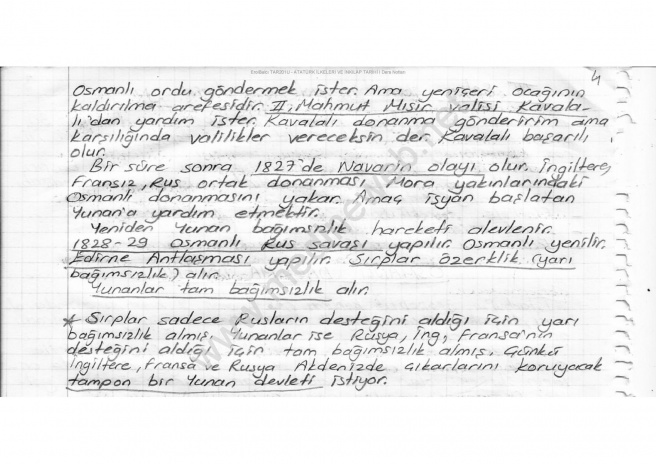 TARİHİ I - ATATÜRK İLKELERİ VE İNKILAP TARİHİ I Ders Notları
4
Osmanlı ordu göndermek ister. Ama yeniçeri ocağının
kaldırılma arefesidir. II. Mahmut Mısır valisi Kavala-
lı'dan yardım ister. Kavalalı donanma gönderirim ama
karşılığında valilikler vereceksin der. Kavalalı başarılı
olur.
Bir süre sonra 1827'de Navarin olayı olur. İngiltere,
Fransız, Rus ortak donanması Mora yakınlarındaki
Osmanlı donanmasını yakar. Amaç isyan başlatan
Yunan'a yardım etmektir.
Yeniden Yunan bağımsızlık hareketi alevlenir.
1828-29 Osmanlı Rus savaşı yapılır. Osmanlı yenilir.
Edirne Antlaşması yapılır. Sırplar özerklik (yarı
bağımsızlık) alır.
Yunanlar tam bağımsızlık alır.
* Sırplar sadece Rusların desteğini aldığı için yarı
bağımsızlık almış, Yunanlar ise Rusya, İng, Fransa'nın
desteğini aldığı için tam bağımsızlık almış, Çünkü
İngiltere, Fransa ve Rusya Akdenizde çıkarlarını koruyacak
tampon bir Yunan devleti istiyor.